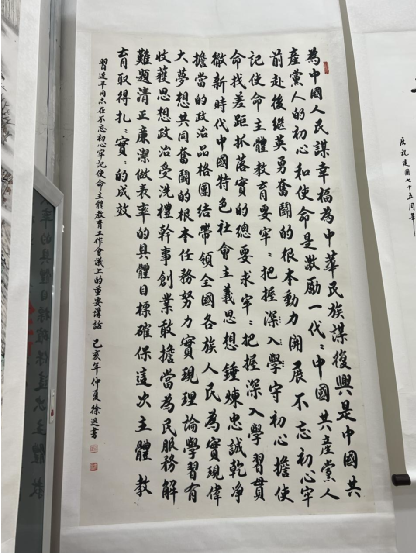 為中國人民謀幸福為中華民族謀復興是中國共
產黨人的初心和使命是激勵一代〻中國共產黨人
前赴後繼英勇奮鬪的根本動力開展不忘初心牢
記使命主體教育要牢〻把握深入學守初心擔使
命找差距抓落實的總要求牢〻把握深入學習貫
徹新時代中國特色社會主義思想鍾煉忠誠乾净
擔當的政治品格團结帶領全國各族人民為實現偉
大夢想共同奮鬪的根本任務努力實現理論學習有
收獲思想政治受洗禮幹事創業敢擔當為民服務解
難題清正廉潔做表率的具體目標確保這次主體教
育取得扎〻實〻的成效
習近平同志在不忘初心牢記使命主體教育工作會議上的重要講話 己亥年仲夏 徐
慶祝建國七十五周年